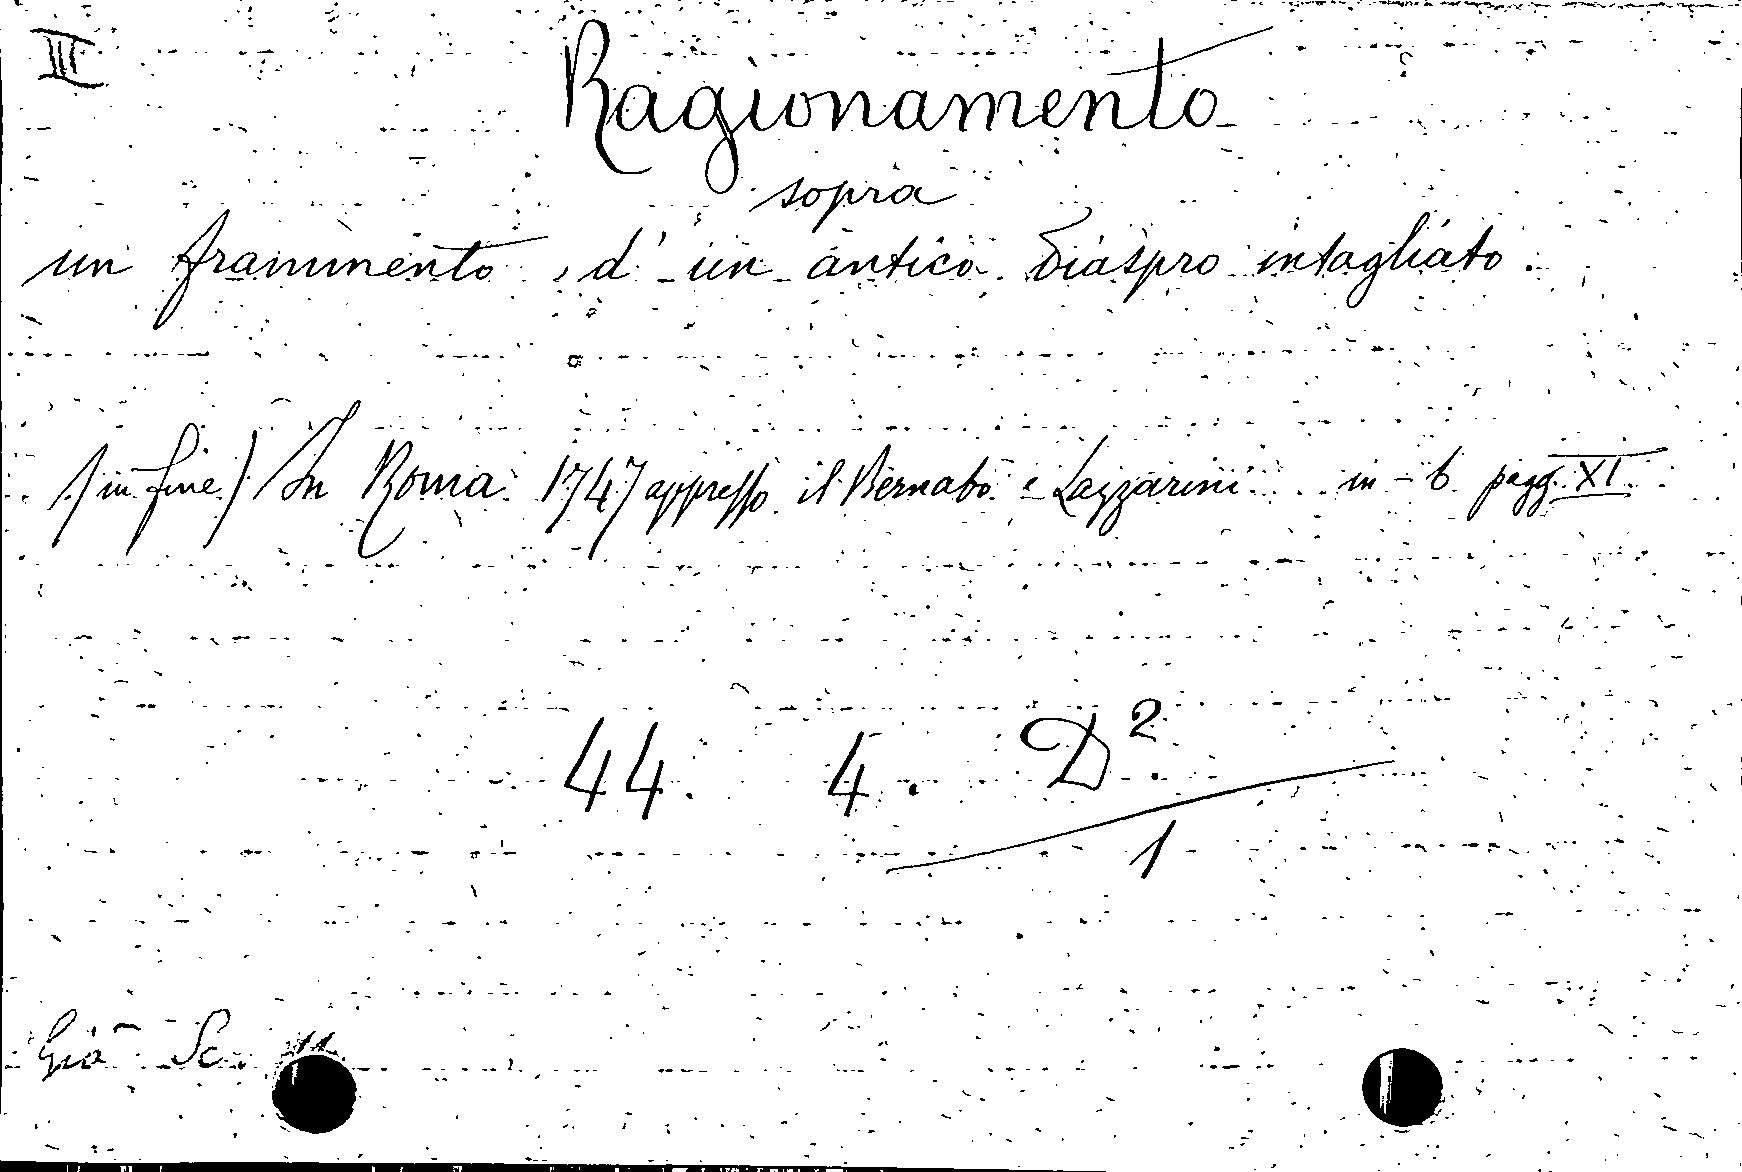 III
Ragionamento
sopra
un frammento, d'un antico diaspro intagliato.
(in fine) In Roma 1747 appresso il Bernabò e Lazzarini in-6 pagg. XI.
44. 4. D 2.
1
Già Sc.